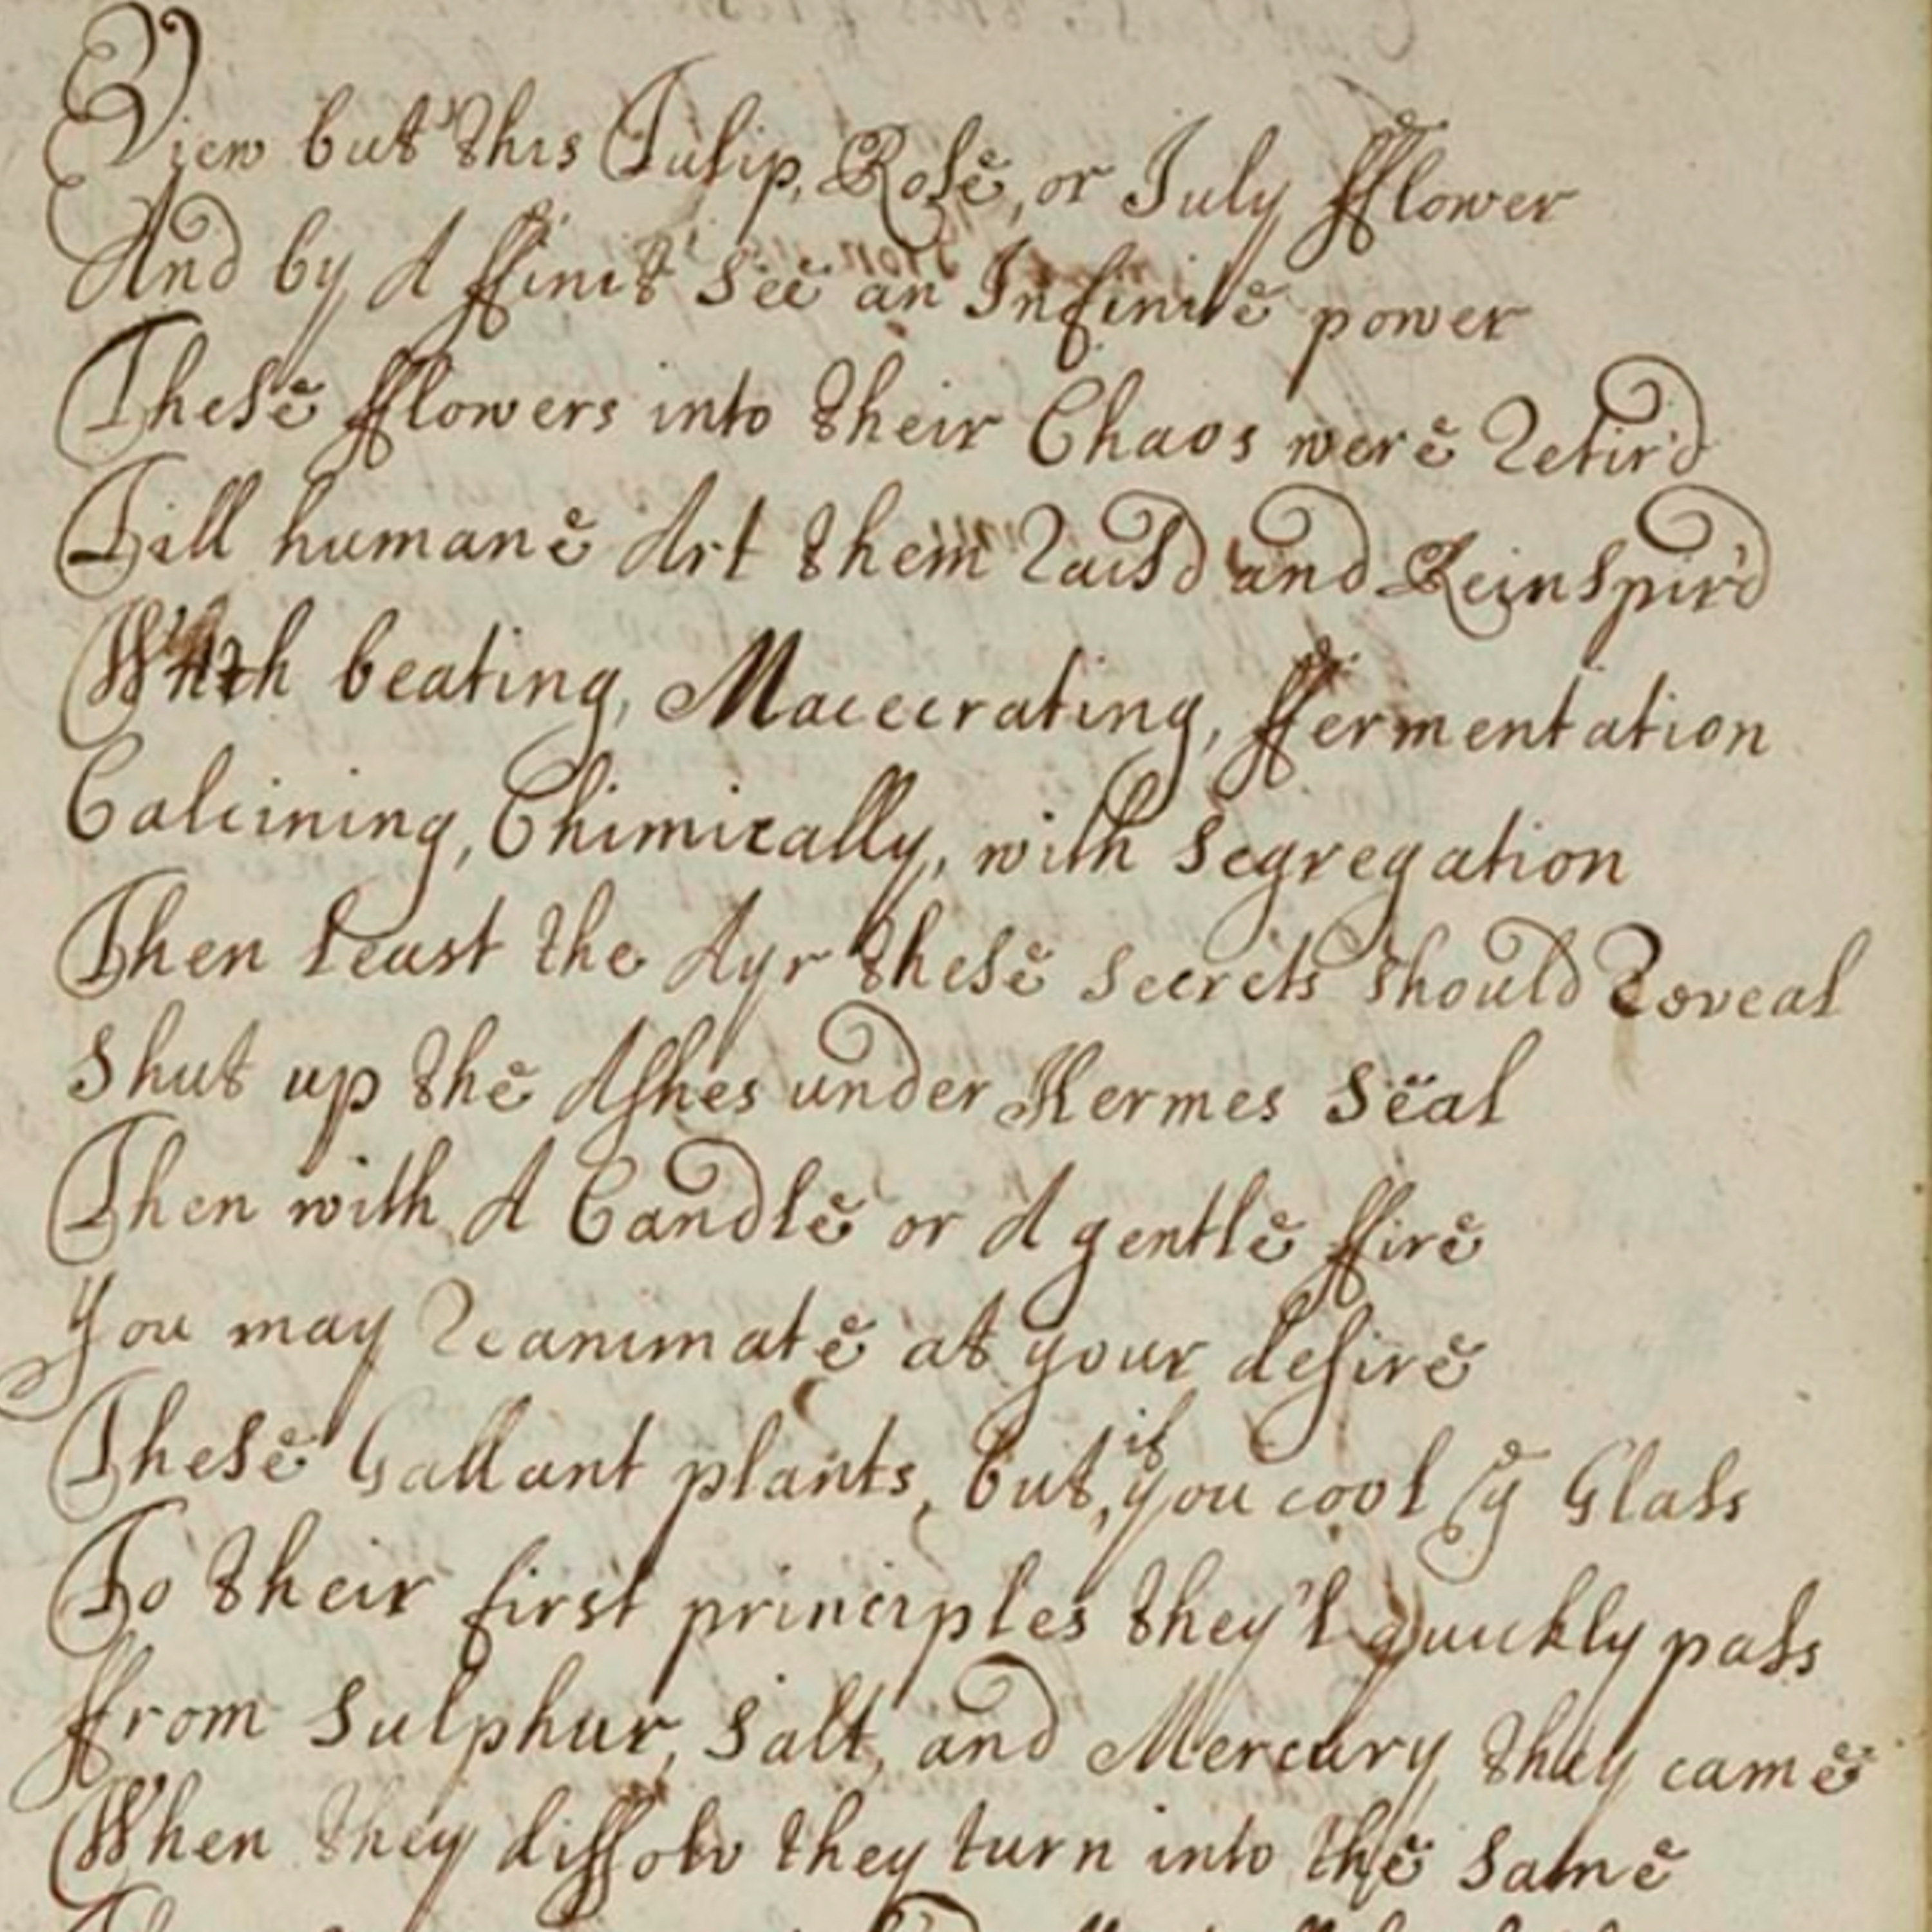 View but this Tulip, Rose, or July fflower
And by A ffinit See an Infinite power
These fflowers into their Chaos were Retir'd
Till humane Art them Rais'd and Reinspir'd
With beating, Maceerating, ffermentation
Calcining, Chimically, with Segregation
Then Least the Ayr these Secrets Should Reveal
Shut up the Ashes under Hermes Seal
Then with A Candle or A gentle ffire
You may Reanimate at your desire
These Gallant plants, but, if you cool ye Glass
To their first principles they'l quickly pass
ffrom Sulphur, Salt, and Mercury they came
When they dissolv they turn into the Same